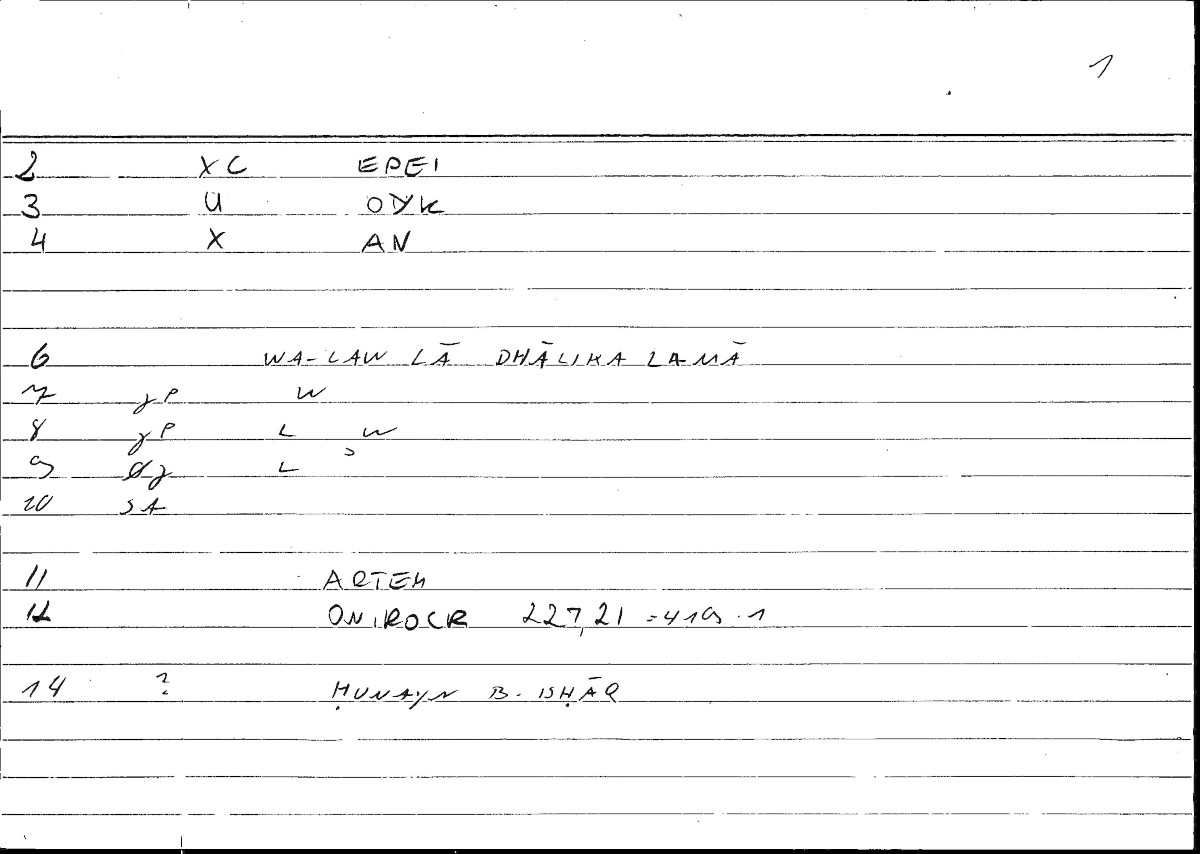 1
2 XC EPEI
3 U OYK
4 X AN
6 WA-LAW LĀ DHĀLIKA LAMĀ
7 gP W
8 gP L W
9 L
10 SA
11 ARTEM
12 ONIROCR 227,21 = 419.1
14 ? ḤUNAYN B. ISḤĀQ